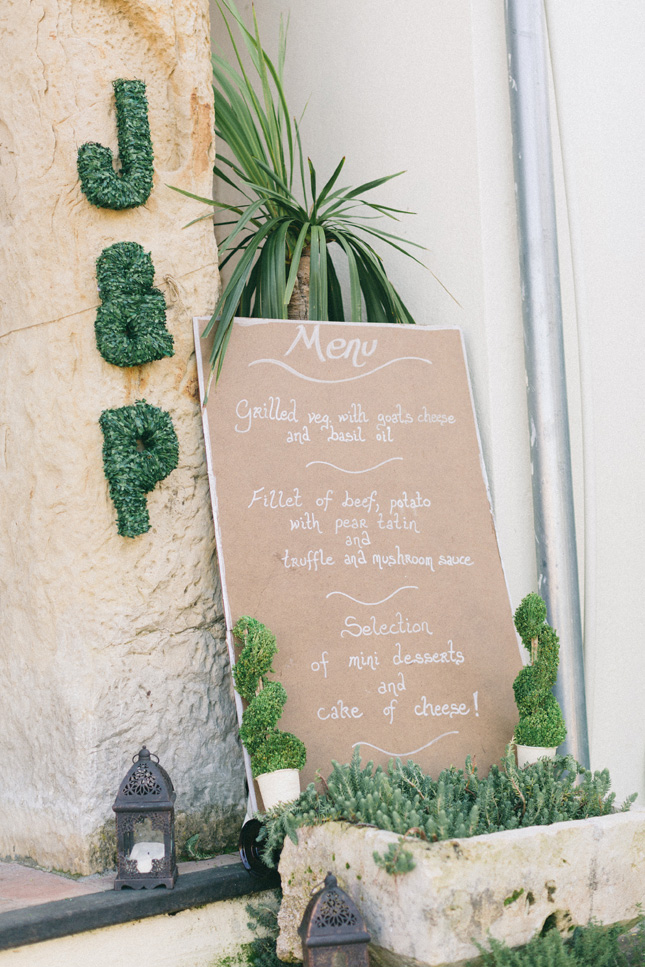 J
&
P
Menu
Grilled veg. with goats cheese
and basil oil
Fillet of beef, potato
with pear tatin
and
truffle and mushroom sauce
Selection
of mini desserts
and
cake of cheese!